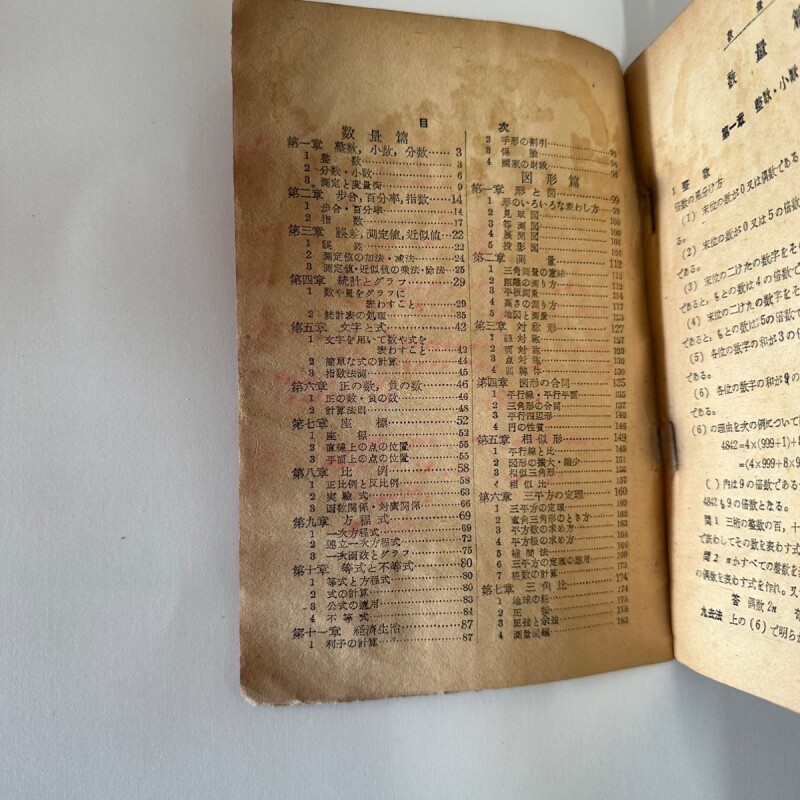 目次
数量篇
第一章 整数,小数,分数……3
1 整数……3
2 分数・小数……6
3 測定と度量衡……9
第二章 歩合,百分率,指数……14
1 歩合・百分率……14
2 指数……17
第三章 誤差,測定値,近似値……22
1 誤差……22
2 測定値の加法・減法……24
3 測定値・近似値の乗法・除法……25
第四章 統計とグラフ……29
1 数や量をグラフに
表わすこと……29
2 統計表の処理……35
第五章 文字と式……42
1 文字を用いて数や式を
表わすこと……42
2 簡単な式の計算……44
3 指数法則……45
第六章 正の数,負の数……46
1 正の数・負の数……46
2 計算法則……48
第七章 座標……52
1 座標……52
2 直線上の点の位置……55
3 平面上の点の位置……55
第八章 比例……58
1 正比例と反比例……58
2 実験式……63
3 函数関係・対応関係……66
第九章 方程式……69
1 一次方程式……69
2 連立一次方程式……72
3 一次函数とグラフ……75
第十章 等式と不等式……80
1 等式と方程式……80
2 式の計算……80
3 公式の運用……83
4 不等式……84
第十一章 経済生活……87
1 利子の計算……87
2 手形の割引
3 保険
4 国家の財政……96
図形篇
第一章 形と図……99
1 形のいろいろな表わし方
2 見取図
3 等測図
4 展開図
5 投影図
第二章 測量……112
1 三角測量の意味……112
2 距離の測り方
3 平板測量……114
4 高さの測り方……117
5 地図と測量
第三章 対称形……127
1 線対称
2 面対称
3 点対称
4 回転体
第四章 図形の合同……135
1 平行線・平行平面……135
2 三角形の合同
3 平行四辺形
4 円の性質
第五章 相似形……149
1 平行線と比
2 図形の拡大・縮少……151
3 相似三角形
4 相似比……157
第六章 三平方の定理……160
1 三平方の定理
2 直角三角形のとき方
3 平方数の求め方……163
4 平方根の求め方
5 補間法
6 三平方の定理の応用
7 根数の計算
第七章 三角比……174
1 地球の経
2 正接
3 正弦と余弦
4 測量問題……183
数量篇
第一章 整数・小数
1 整数
倍数の見分け方
(1) 末位の数が0又は偶数である
(2) 末位の数が0又は5の倍数で
である。
(3) 末位の二けたの数字をそ
であると,もとの数は4の倍数で
(4) 末位の二けたの数字をそ
であると,もとの数は
(5) 各位の数字の和が3の倍
である。
(6) 各位の数字の和が9の
である。
(6)の理由を次の例について
4842=4×(999+1)+8
=(4×999+8×9
( )内は9の倍数である
4842も9の倍数となる。
問1 三桁の整数の百,十
で表わしてその数を表わす式
問2 nがすべての整数を表
の偶数を表わす式を作れ。又
答 偶数2n
九去法 上の(6)で明らか